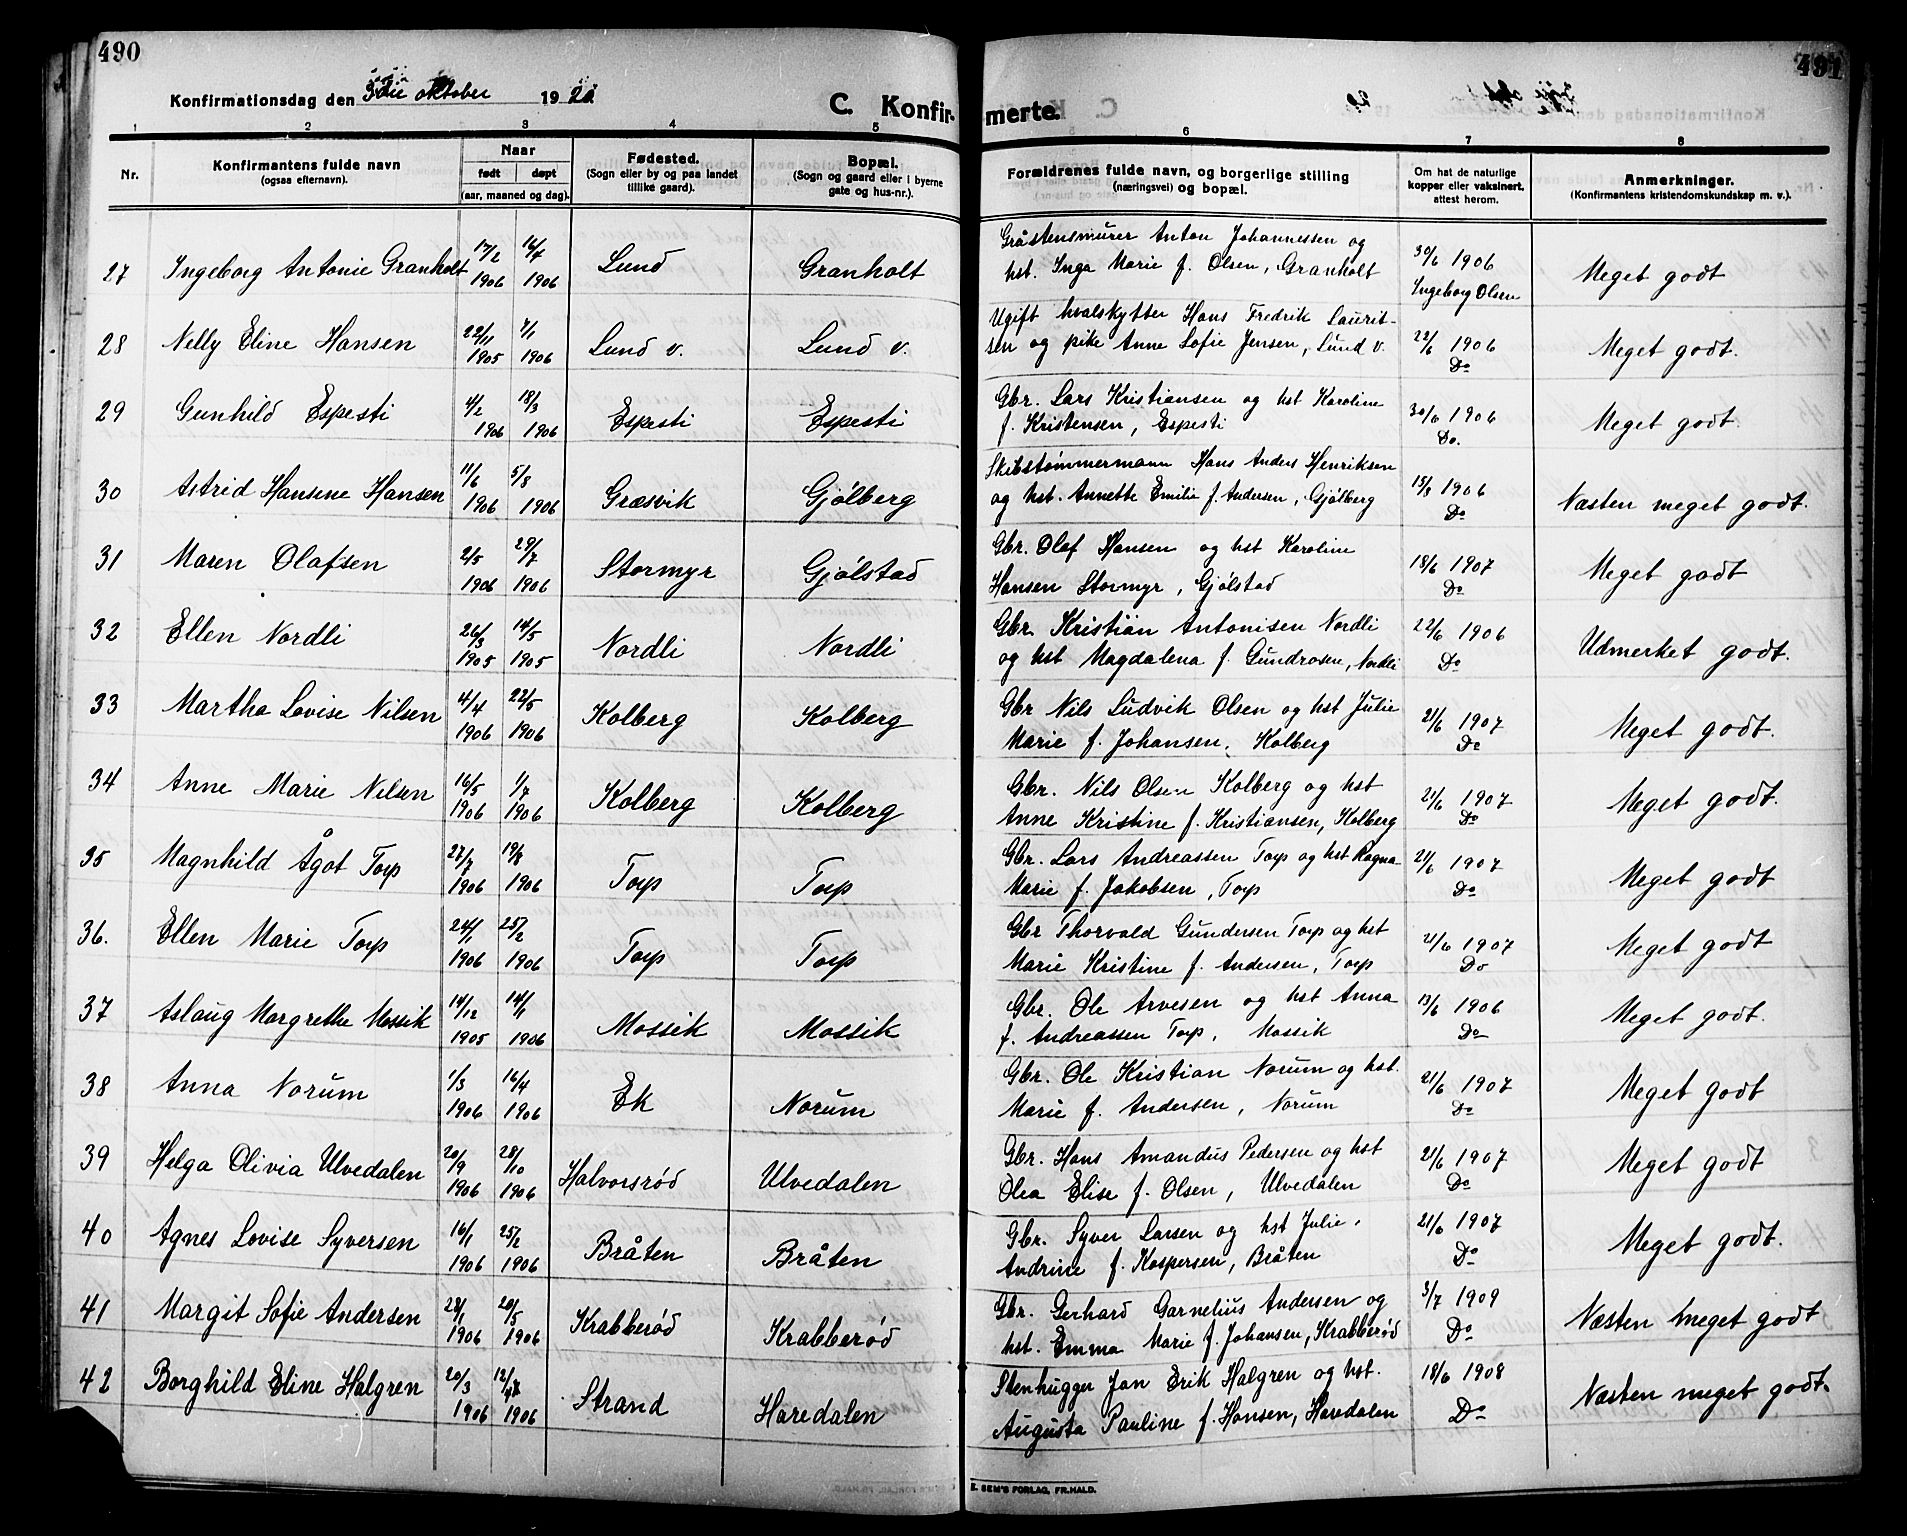 490
491
Konfirmationsdag den oktober 19 20
C. Konfirmerte.
1 2 3 4 5 6 7 8
Nr.
Konfirmantens fulde navn (ogsaa efternavn).
Naar født døpt (aar, maaned og dag).
Fødested. (Sogn eller by og paa landet tillike gaard).
Bopæl. (Sogn og gaard eller i byerne gate og hus-nr.).
Forældrenes fulde navn, og borgerlige stilling (næringsvei) og bopæl.
Om hat de naturlige kopper eller vaksinert, attest herom.
Anmerkninger. (Konfirmantens kristendomskundskap m. v.).
27 Ingeborg Antonie Granholt 17/2 1906 16/4 1906 Lund Granholt Gråstensmurer Anton Johannessen og
hst. Inga Marie f. Olsen, Granholt 30/6 1906 Ingeborg Olsen Meget godt
28 Nelly Eline Hansen 22/11 1905 7/1 1906 Lund v. Lund v. Ugift hvalskytter Hans Fredrik Laurit-
sen og pike Anne Sofie Jensen, Lund v. 22/6 1906 Do Meget godt.
29 Gunhild Espesti 4/2 1906 18/3 1906 Espesti Espesti Gbr. Lars Kristiansen og hst Karoline
f. Kristensen, Espesti 30/6 1906 Do. Meget godt.
30 Astrid Hansine Hansen 11/6 1906 5/8 1906 Græsvik Gjølberg Skibstømmermann Hans Anders Henriksen
og hst. Annette Emilie f. Andersen, Gjølberg 15/8 1906 Do Næsten meget godt.
31 Maren Olafsen 2/5 1906 29/7 1906 Stormyr Gjølstad Gbr. Olaf Hansen og hst Karoline
Hansen Stormyr, Gjølstad 18/6 1907 Do Meget godt
32 Ellen Nordli 26/3 1905 14/5 1905 Nordli Nordli Gbr. Kristian Antonisen Nordli
og hst Magdalena f. Gundrosen, Nordli 22/6 1906 Do Udmerket godt.
33 Martha Lovise Nilsen 4/4 1906 22/5 1906 Kolberg Kolberg Gbr Nils Ludvik Olsen og hst Julie
Marie f. Johansen, Kolberg 21/6 1907 Do Meget godt.
34 Anne Marie Nilsen 16/5 1906 1/7 1906 Kolberg Kolberg Gbr. Nils Olsen Kolberg og hst
Anne Kristine f. Kristiansen, Kolberg 21/6 1907 Do Meget godt.
35 Magnhild Ågot Torp 27/7 1906 19/8 1906 Torp Torp Gbr. Lars Andreassen Torp og hst Ragna
Marie f. Jakobsen, Torp 21/6 1907 Do Meget godt
36. Ellen Marie Torp 24/1 1906 25/2 1906 Torp Torp Gbr Thorvald Gundersen Torp og hst
Marie Kristine f. Andersen, Torp 21/6 1907 Do Meget godt
37 Aslaug Margrethe Mossik 14/12 1905 14/1 1906 Mossik Mossik Gbr. Ole Arvesen og hst Anna
f. Andreassen Torp, Mossik 13/6 1906 Do Meget godt.
38 Anna Norum 1/3 1906 16/4 1906 Ek Norum Gbr. Ole Kristian Norum og hst.
Marie f. Andersen, Norum 21/6 1907 Do Meget godt
39 Helga Olivia Ulvedalen 20/9 1906 28/10 1906 Halvorsrød Ulvedalen Gbr. Hans Amandus Pedersen og hst
Olea Elise f. Olsen, Ulvedalen 21/6 1907 Do Meget godt
40 Agnes Lovise Syversen 16/1 1906 25/2 1906 Bråten Bråten Gbr. Syver Larsen og hst Julie
Andrine f. Kaspersen, Bråten 21/6 1907 Do Meget godt.
41 Margit Sofie Andersen 28/1 1906 20/5 1906 Krabberød Krabberød Gbr. Gerhard Garnelius Andersen og
hst. Emma Marie f. Johansen, Krabberød 3/7 1909 Do Næsten meget godt
42 Borghild Eline Halgren 20/3 1906 12/4 1906 Strand Haredalen Stenhugger Jan Erik Halgren og hst.
Augusta Pauline f. Hansen, Haredalen 18/6 1908 Do Næsten meget godt.
E. SEM'S FORLAG, FR.HALD.